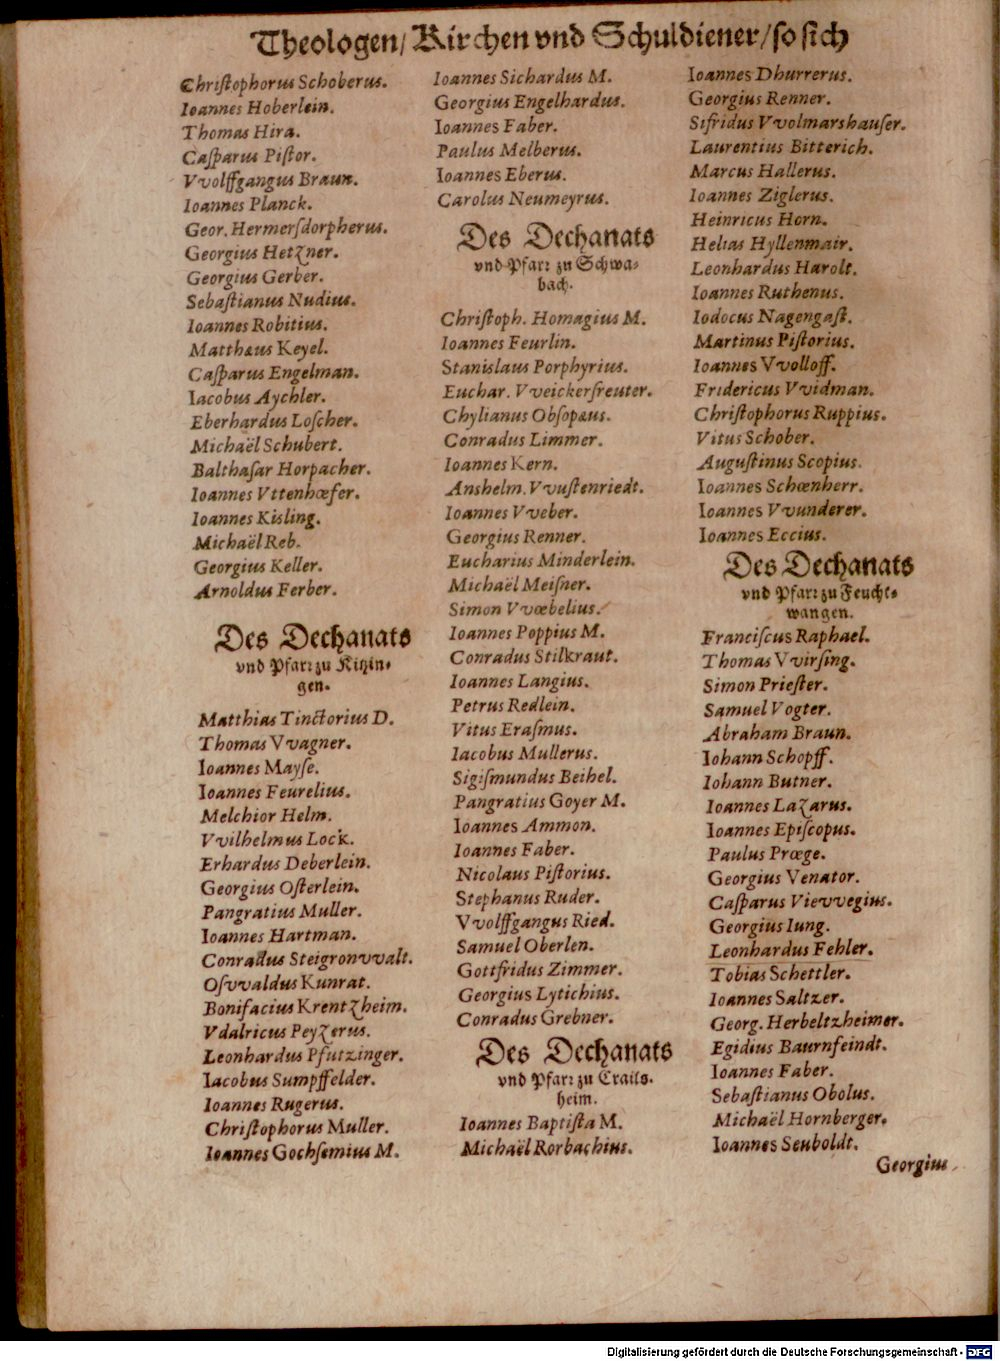 Theologen/ Kirchen vnd Schuldiener/ so sich
Christophorus Schoberus.
Ioannes Hoberlein.
Thomas Hira.
Casparus Pistor.
Vvolffgangus Braun.
Ioannes Planck.
Geor. Hermersdorpherus.
Georgius Hetzner.
Georgius Gerber.
Sebastianus Nudius.
Ioannes Robitius.
Matthæus Keyel.
Casparus Engelman.
Iacobus Aychler.
Eberhardus Loscher.
Michaël Schubert.
Balthasar Horpacher.
Ioannes Vttenhœfer.
Ioannes Kisling.
Michaël Reb.
Georgius Keller.
Arnoldus Ferber.
Des Dechanats
vnd Pfarr zu Kitzin-
gen.
Matthias Tinctorius D.
Thomas Vvagner.
Ioannes Mayse.
Ioannes Feurelius.
Melchior Helm.
Vvilhelmus Lock.
Erhardus Deberlein.
Georgius Osterlein.
Pangratius Muller.
Ioannes Hartman.
Conradus Steigronvvalt.
Osvvaldus Kunrat.
Bonifacius Krentzheim.
Vdalricus Peyzerus.
Leonhardus Pfutzinger.
Iacobus Sumpffelder.
Ioannes Rugerus.
Christophorus Muller.
Ioannes Gochsemius M.
Ioannes Sichardus M.
Georgius Engelhardus.
Ioannes Faber.
Paulus Melberus.
Ioannes Eberus.
Carolus Neumeyrus.
Des Dechanats
vnd Pfarr zu Schwa-
bach.
Christoph. Homagius M.
Ioannes Feurlin.
Stanislaus Porphyrius.
Euchar. Vveickersreuter.
Chylianus Obsopæus.
Conradus Limmer.
Ioannes Kern.
Anshelm. Vvustenriedt.
Ioannes Vveber.
Georgius Renner.
Eucharius Minderlein.
Michaël Meisner.
Simon Vvœbelius.
Ioannes Poppius M.
Conradus Stilkraut.
Ioannes Langius.
Petrus Redlein.
Vitus Erasmus.
Iacobus Mullerus.
Sigismundus Beihel.
Pangratius Goyer M.
Ioannes Ammon.
Ioannes Faber.
Nicolaus Pistorius.
Stephanus Ruder.
Vvolffgangus Ried.
Samuel Oberlen.
Gottfridus Zimmer.
Georgius Lytichius.
Conradus Grebner.
Des Dechanats
vnd Pfarr zu Crails-
heim.
Ioannes Baptista M.
Michaël Rorbachius.
Ioannes Dhurrerus.
Georgius Renner.
Sifridus Vvolmarshauser.
Laurentius Bitterich.
Marcus Hallerus.
Ioannes Ziglerus.
Heinricus Horn.
Helias Hyllenmair.
Leonhardus Harolt.
Ioannes Ruthenus.
Iodocus Nagengast.
Martinus Pistorius.
Ioannes Vvolloff.
Fridericus Vvidman.
Christophorus Ruppius.
Vitus Schober.
Augustinus Scopius.
Ioannes Schœnherr.
Ioannes Vvunderer.
Ioannes Eccius.
Des Dechanats
vnd Pfarr zu Feucht-
wangen.
Franciscus Raphael.
Thomas Vvirsing.
Simon Priester.
Samuel Vogter.
Abraham Braun.
Iohann Schopff.
Iohann Butner.
Ioannes Lazarus.
Ioannes Episcopus.
Paulus Præge.
Georgius Venator.
Casparus Vievvegius.
Georgius Iung.
Leonhardus Fehler.
Tobias Schettler.
Ioannes Saltzer.
Georg. Herbeltzheimer.
Egidius Baurnfeindt.
Ioannes Faber.
Sebastianus Obolus.
Michaël Hornberger.
Ioannes Seuboldt.
Georgius
Digitalisierung gefördert durch die Deutsche Forschungsgemeinschaft - DFG